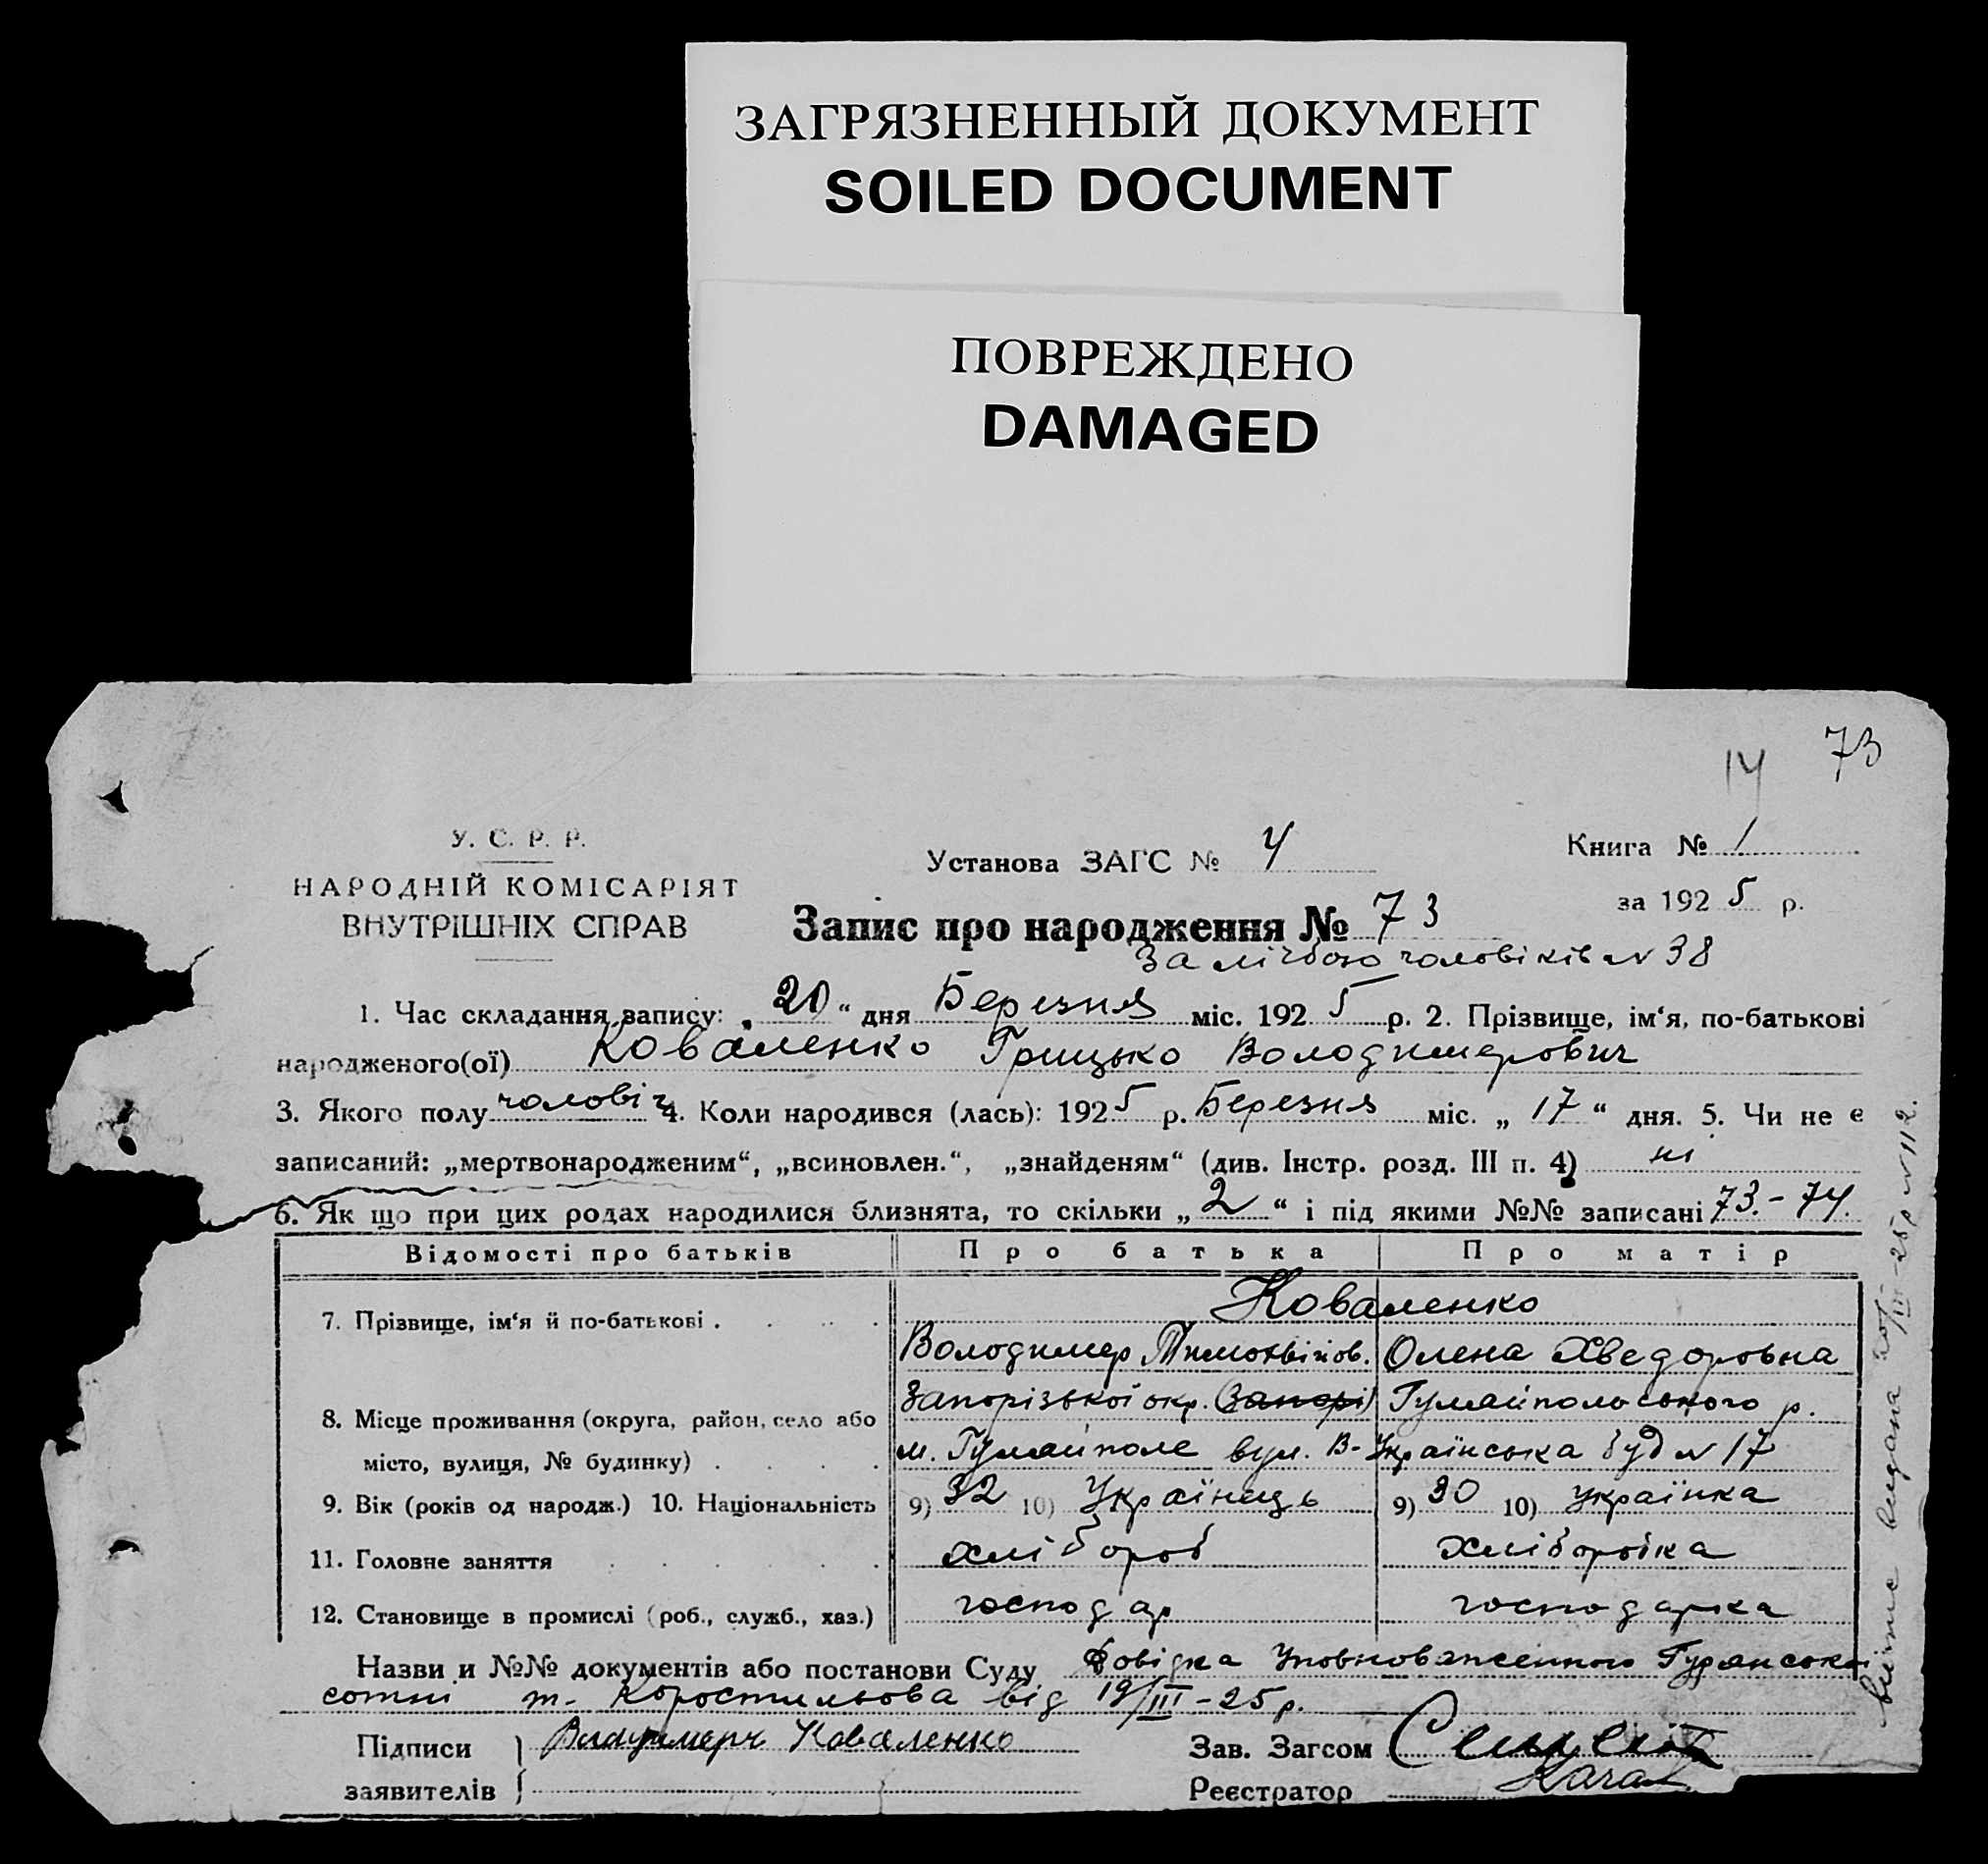 ЗАГРЯЗНЕННЫЙ ДОКУМЕНТ
SOILED DOCUMENT
ПОВРЕЖДЕНО
DAMAGED
73
14
У. С. Р. Р.
НАРОДНІЙ КОМІСАРІЯТ
ВНУТРІШНІХ СПРАВ
Установа ЗАГС № 4
Книга № 1
за 1925 р.
Запис про народження № 73
За лічбою чоловіків № 38
1. Час складання запису: „20“ дня Березня міс. 1925 р. 2. Прізвище, ім‘я, по-батькові
народженого(ої) Коваленко Грицько Володимерович
3. Якого полу чоловіч 4. Коли народився (лась): 1925 р. Березня міс. „17“ дня. 5. Чи не є
записаний: „мертвонародженим“, „всиновлен.“, „знайденям“ (див. Інстр. розд. III п. 4) ні
6. Як що при цих родах народилися близнята, то скільки „2“ і під якими №№ записані 73.-74.
Відомості про батьків Про батька Про матір
7. Прізвище, ім‘я й по-батькові . Коваленко
Володимер Тимохвійов. Олена Хведоровна
8. Місце проживання (округа, район, село або Запорізької окр. (Запорі) Гуляйпольського р.
місто, вулиця, № будинку) м. Гуляйполе вул. В-Українська буд № 17
9. Вік (років од народж.) 10. Національність 9) 32 10) Українець 9) 30 10) Українка
11. Головне заняття хлібороб хліборобка
12. Становище в промислі (роб., служб., хаз.) господар господарка
Назви и №№ документів або постанови Суду Довідка Уповноваженного
сотні т. Коростильова від 19/III-25 р.
Підписи Владимерч Коваленко Зав. Загсом
заявителів Реєстратор
видана 20/III-25 р № 112.